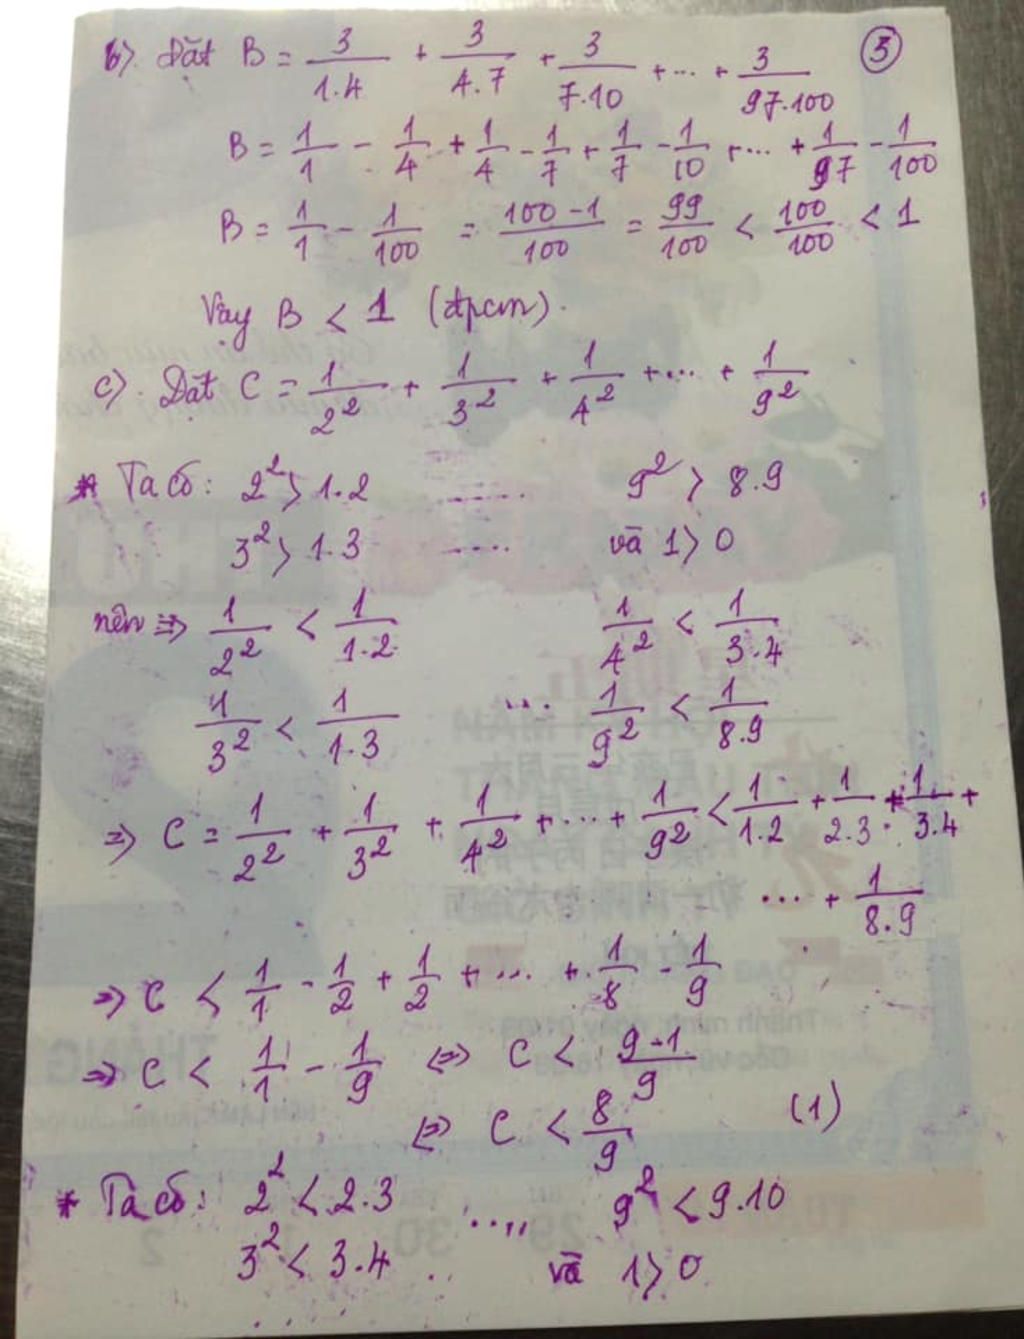 b). Đặt B = 3/1.4 + 3/4.7 + 3/7.10 + ... + 3/97.100 ③
B = 1/1 - 1/4 + 1/4 - 1/7 + 1/7 - 1/10 + ... + 1/97 - 1/100
B = 1/1 - 1/100 = 100-1/100 = 99/100 < 100/100 < 1
Vậy B < 1 (đpcm).
c). Đặt C = 1/2² + 1/3² + 1/4² + ... + 1/9²
* Ta có: 2² > 1.2 ...... 9² > 8.9
3² > 1.3 ..... và 1 > 0
nên => 1/2² < 1/1.2 1/4² < 1/3.4
1/3² < 1/1.3 ... 1/9² < 1/8.9
=> C = 1/2² + 1/3² + 1/4² + ... + 1/9² < 1/1.2 + 1/2.3 + 1/3.4 +
... + 1/8.9
=> C < 1/1 - 1/2 + 1/2 + ... + 1/8 - 1/9
=> C < 1/1 - 1/9 <=> C < 9-1/9
<=> C < 8/9 (1)
* Ta có: 2² < 2.3 ..... 9² < 9.10
3² < 3.4 .. và 1 > 0